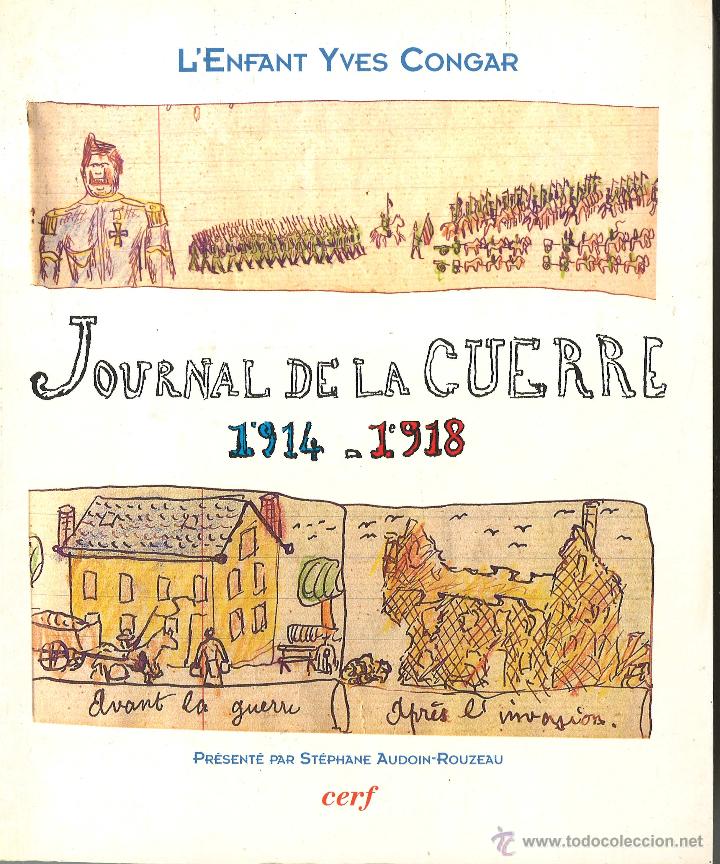 L'Enfant Yves Congar
JOURNAL DE LA GUERRE
1914 - 1918
avant la guerre
après l'invasion.
Présenté par Stéphane Audoin-Rouzeau
cerf
www.todocoleccion.net